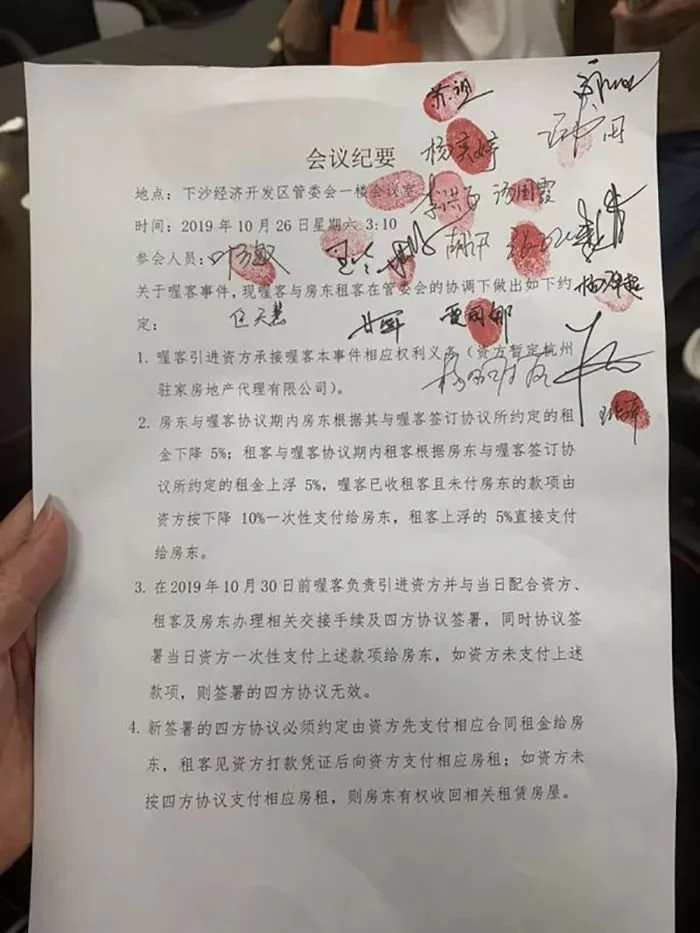 苏祖
会议纪要
杨奕婷
地点:下沙经济开发区管委会一楼会议室
李洪
汤国霞
时间:2019年10月26日星期六 3:10
参会人员:
叶方敏
关于喔客事件,现喔客与房东租客在管委会的协调下做出如下约
定:
1. 喔客引进资方承接喔客本事件相应权利义务(资方暂定杭州
驻家房地产代理有限公司)。
2. 房东与喔客协议期内房东根据其与喔客签订协议所约定的租
金下降 5%;租客与喔客协议期内租客根据房东与喔客签订协
议所约定的租金上浮 5%,喔客已收租客且未付房东的款项由
资方按下降 10%一次性支付给房东,租客上浮的 5%直接支付
给房东。
3. 在2019年10月30日前喔客负责引进资方并与当日配合资方、
租客及房东办理相关交接手续及四方协议签署,同时协议签
署当日资方一次性支付上述款项给房东,如资方未支付上述
款项,则签署的四方协议无效。
4. 新签署的四方协议必须约定由资方先支付相应合同租金给房
东,租客见资方打款凭证后向资方支付相应房租;如资方未
按四方协议支付相应房租,则房东有权收回相关租赁房屋。